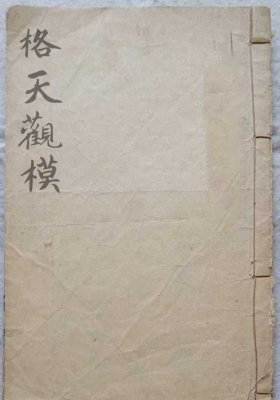 格天觀模